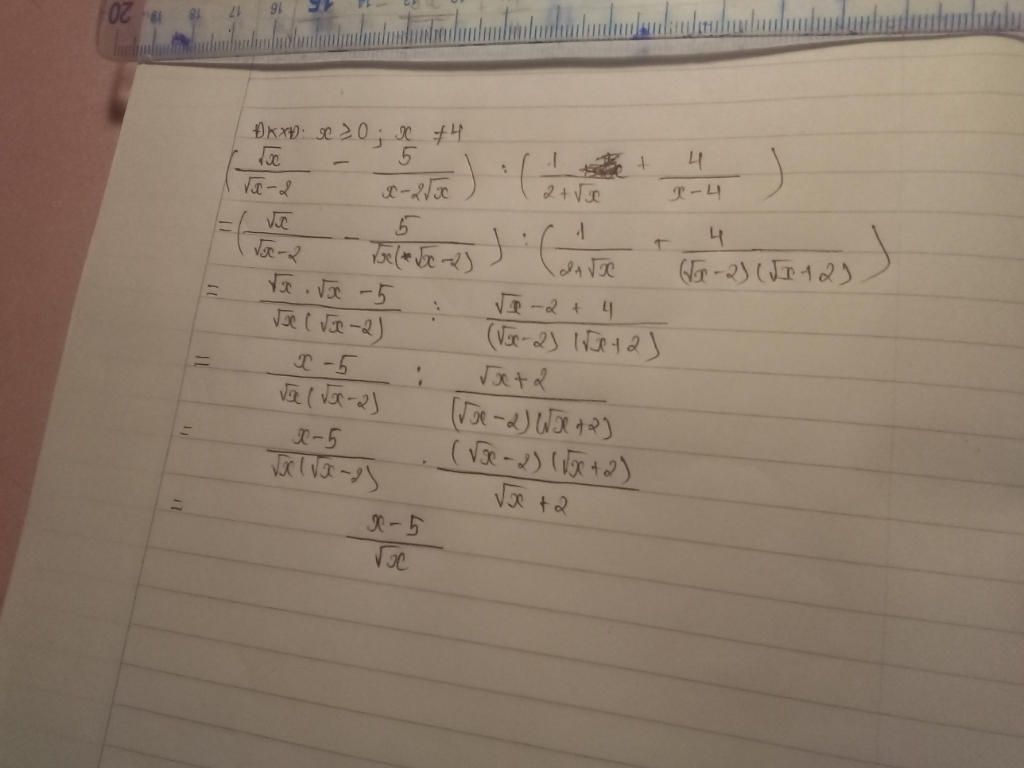 20 19 18 17 16 15 14 12
ĐKXĐ: x ≥ 0; x ≠ 4
(√x/(√x-2) - 5/(x-2√x)) : (1/(2+√x) + 4/(x-4))
= (√x/(√x-2) - 5/(√x(√x-2))) : (1/(2+√x) + 4/((√x-2)(√x+2)))
= (√x.√x-5)/(√x(√x-2)) : (√x-2+4)/((√x-2)(√x+2))
= (x-5)/(√x(√x-2)) : (√x+2)/((√x-2)(√x+2))
= (x-5)/(√x(√x-2)) . ((√x-2)(√x+2))/(√x+2)
= (x-5)/√x